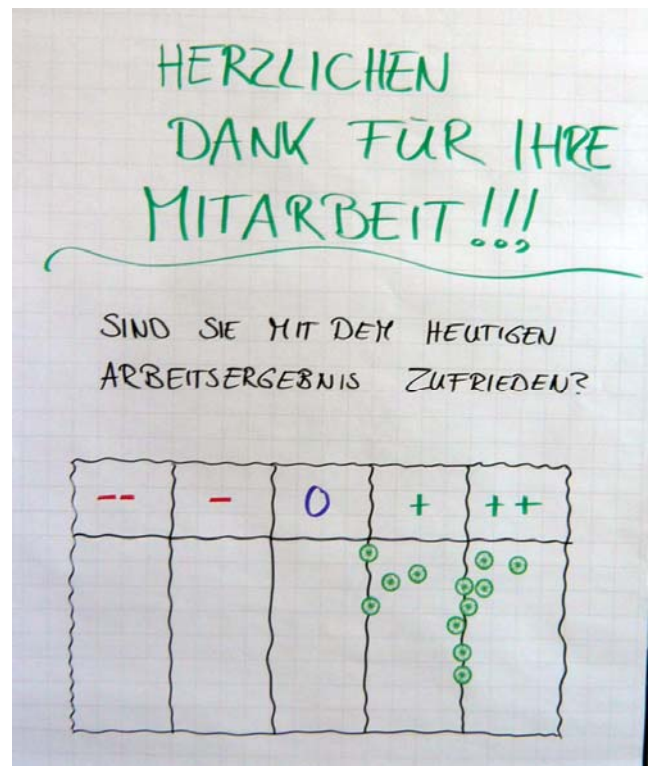 HERZLICHEN
DANK FÜR IHRE
MITARBEIT!!!
SIND SIE MIT DEM HEUTIGEN
ARBEITSERGEBNIS ZUFRIEDEN?
-- - 0 + ++